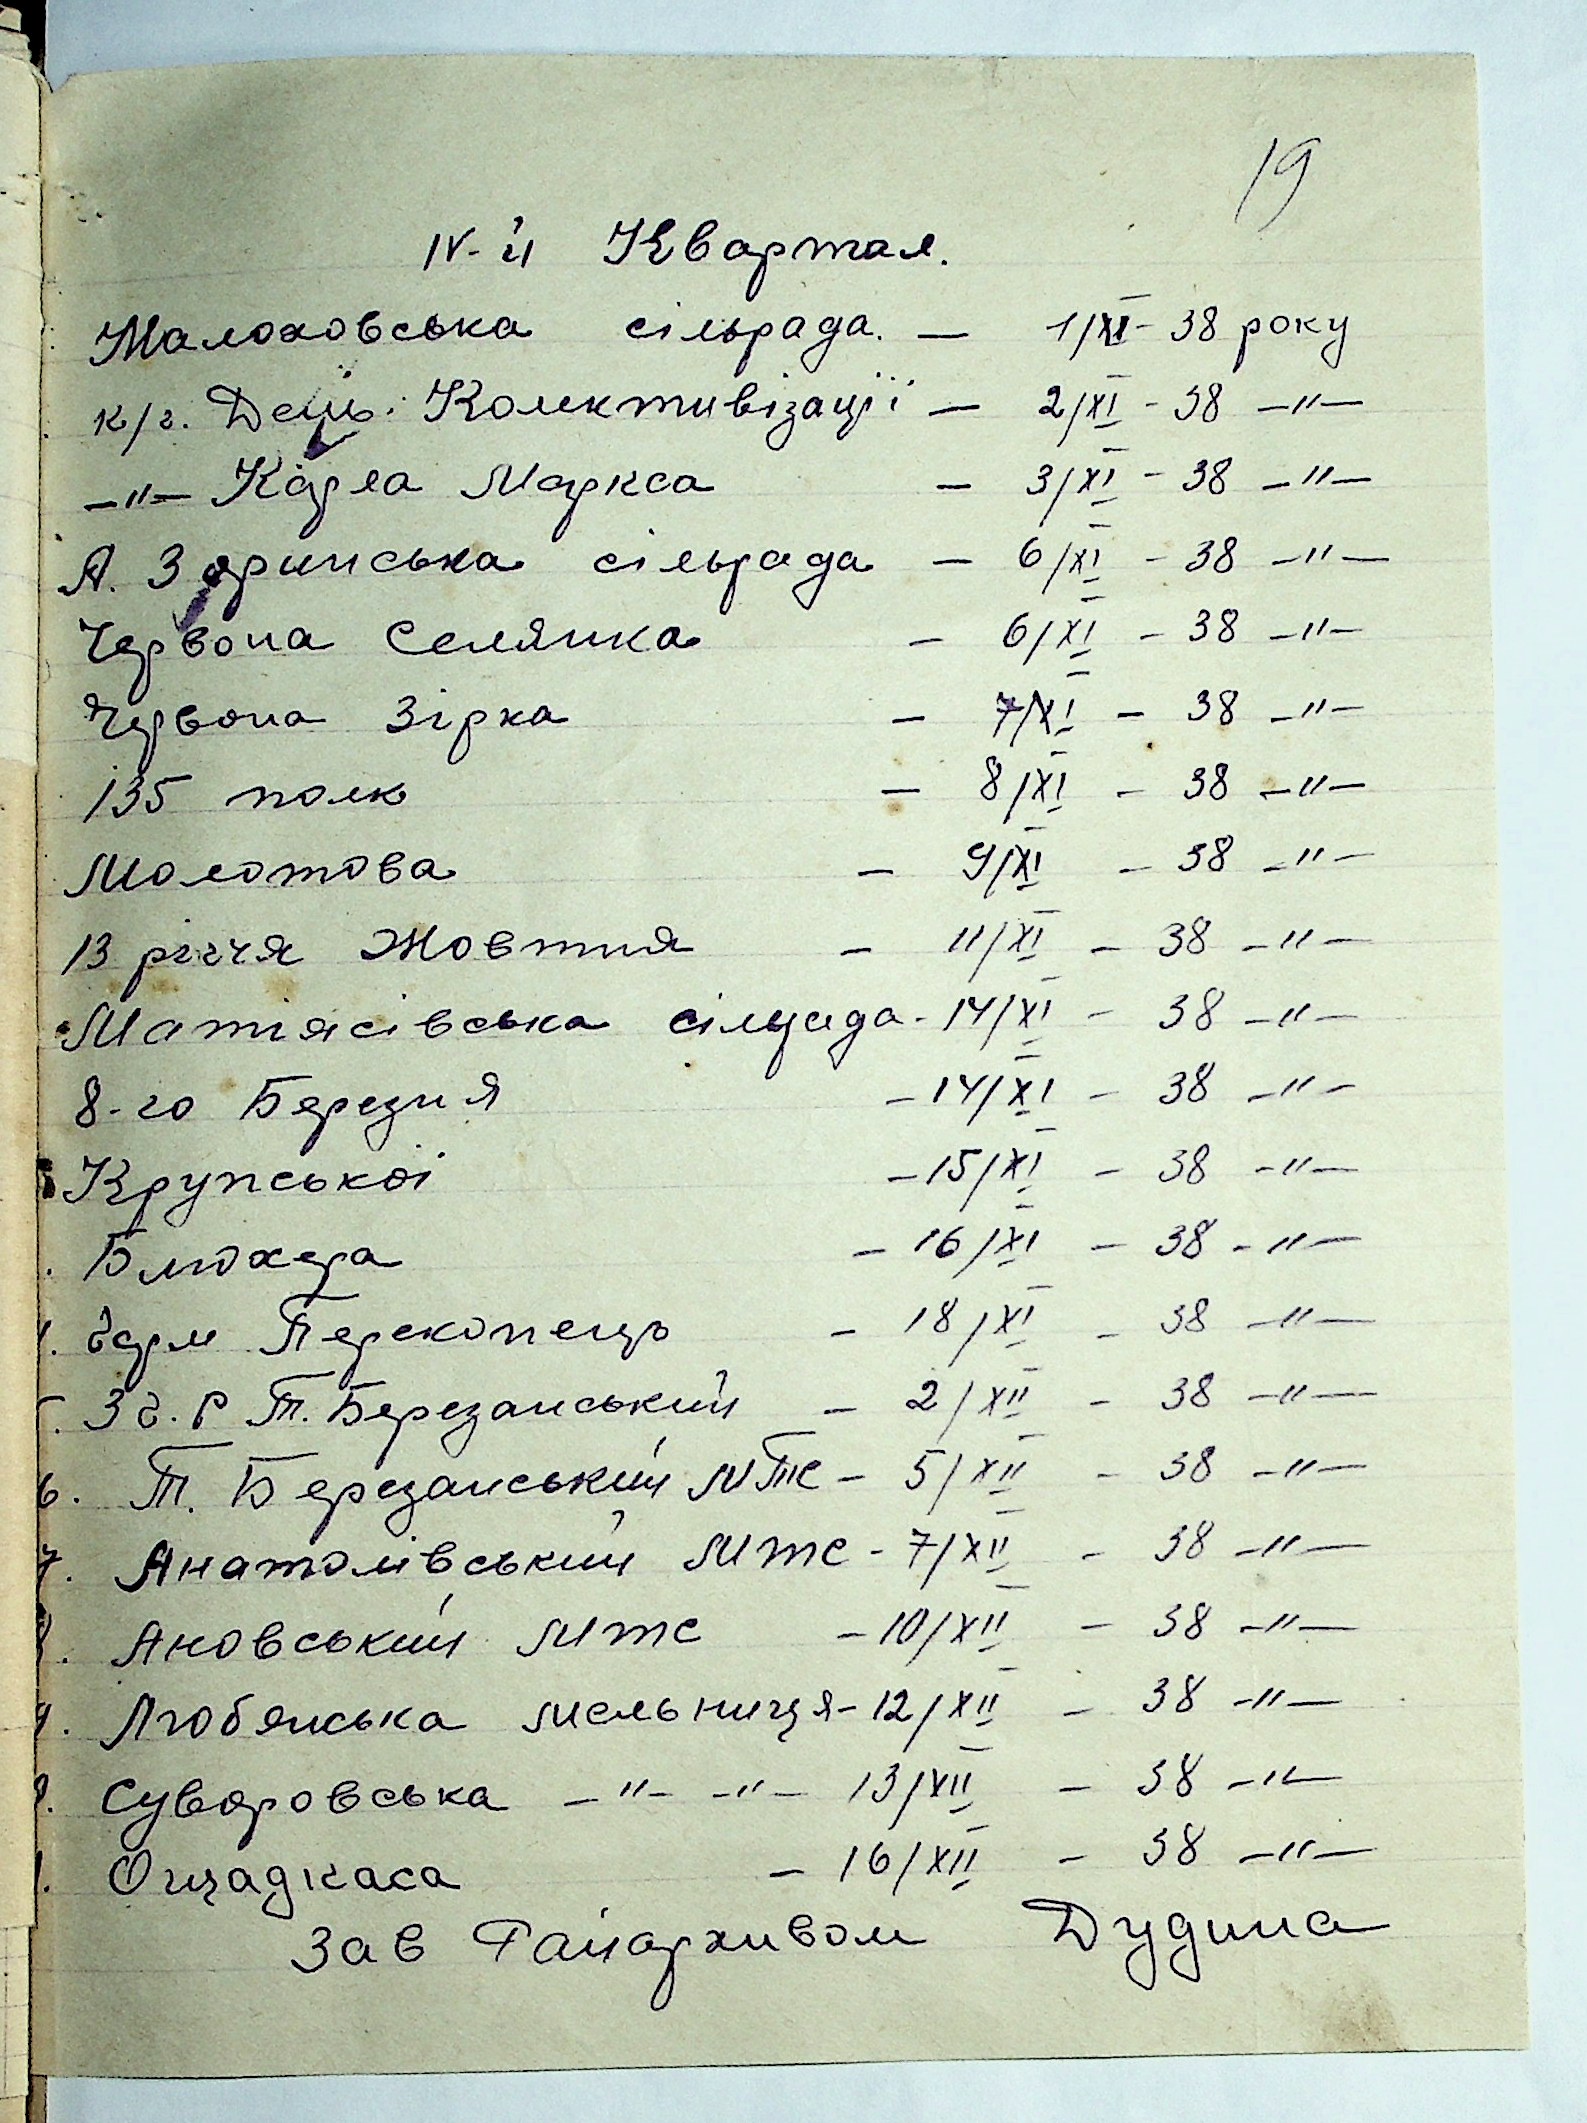 19
IV-й Квартал.
Малоховська сільрада. — 1/XI - 38 року
к/г. Дець. Колективізації — 2/XI - 38 —"—
—"— Карла Маркса — 3/XI - 38 —"—
А. Зоринська сільрада — 6/XI - 38 —"—
Червона Селянка — 6/XI - 38 —"—
Червона Зірка — 7/XI - 38 —"—
135 полк — 8/XI - 38 —"—
Молотова — 9/XI - 38 —"—
13 річчя Жовтня — 11/XI - 38 —"—
Матіясівська сільрада - 14/XI - 38 —"—
8-го Березня — 14/XI - 38 —"—
Крупської — 15/XI - 38 —"—
Блюхера — 16/XI - 38 —"—
Перекопець — 18/XI - 38 —"—
Т. Березанський — 2/XII - 38 —"—
6. Т. Березанський МТС — 5/XII - 38 —"—
7. Анатолівський МТС - 7/XII - 38 —"—
Яновський МТС — 10/XII - 38 —"—
Любянська мельниця - 12/XII - 38 —"—
Суворовська —"— —"— 13/XII - 38 —"—
Ощадкаса — 16/XII - 38 —"—
Зав Райархивом Дудина